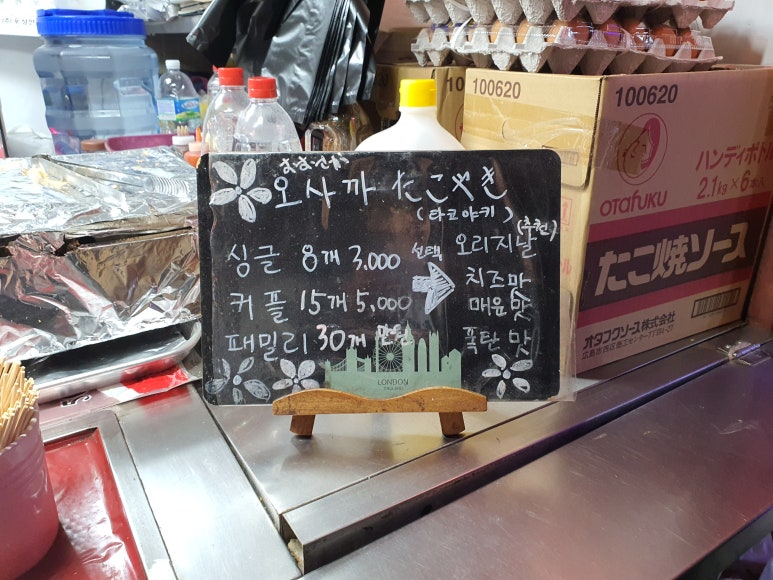 오사까 たこやき
(타코야키)
싱글 8개 3,000
커플 15개 5,000
패밀리 30개 만원
선택
오리지날
(추천)
치즈맛
매운맛
폭탄 맛
LONDON
100620
100620
OTAFUKU
ハンディボトル
2.1kg×6本入
たこ焼ソース
オタフクソース株式会社